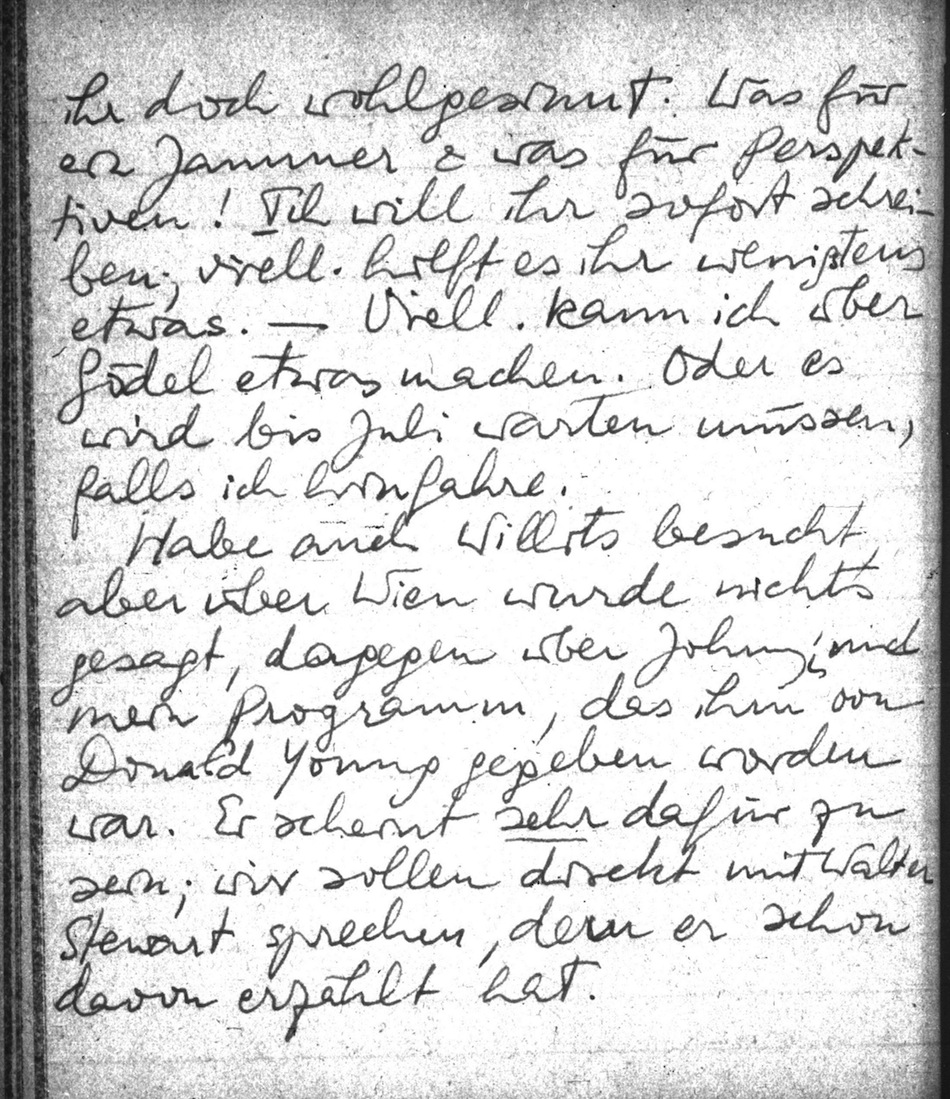 ihr doch wohlgesinnt. Was für
ein Jammer & was für Perspek-
tiven! Ich will ihr sofort schrei-
ben; viell. hilft es ihr wenigstens
etwas. — Viell. kann ich über
Gödel etwas machen. Oder es
wird bis Juli warten müssen,
falls ich hinfahre.
Habe auch Willits besucht,
aber über Wien wurde nichts
gesagt, dagegen über Johnny; und
mein Programm, das ihm von
Donald Young gegeben worden
war. Er scheint sehr dafür zu
sein; wir sollen direkt mit Walter
Stewart sprechen, dem er schon
davon erzählt hat.